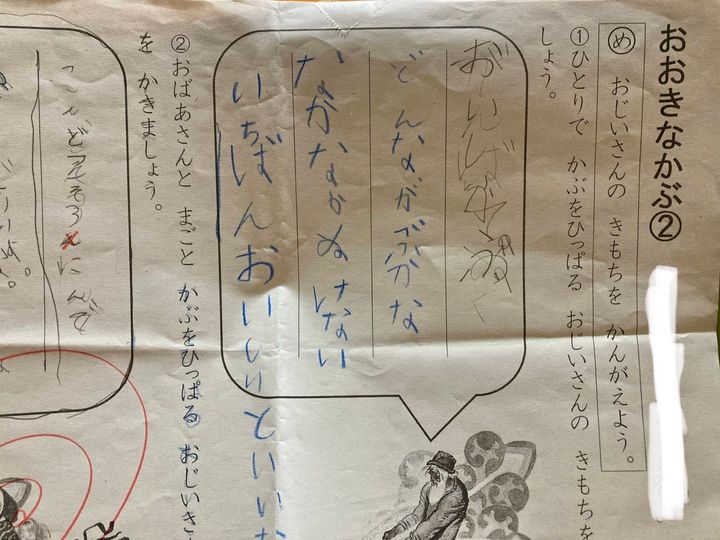 おおきなかぶ②
め おじいさんの きもちを かんがえよう。
①ひとりで かぶをひっぱる おじいさんの きもちを
しょう。
どんながぶかな
なかなかぬけない
いちばんおいしいといいな
②おばあさんと まごと かぶをひっぱる おじいさ
を かきましょう。
にんで